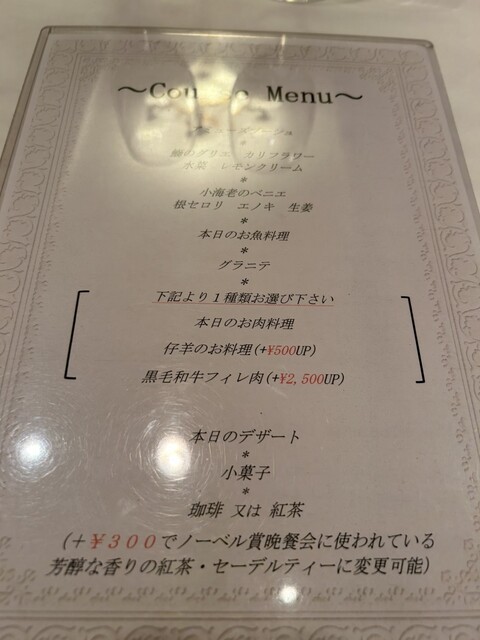 ～Course Menu～
アミューズブーシュ
*
鰤のグリエ カリフラワー
水菜 レモンクリーム
*
小海老のベニエ
根セロリ エノキ 生姜
*
本日のお魚料理
*
グラニテ
*
下記より１種類お選び下さい
本日のお肉料理
仔羊のお料理(+¥500UP)
黒毛和牛フィレ肉(+¥2,500UP)
本日のデザート
*
小菓子
*
珈琲 又は 紅茶
(＋￥３００でノーベル賞晩餐会に使われている
芳醇な香りの紅茶・セーデルティーに変更可能)